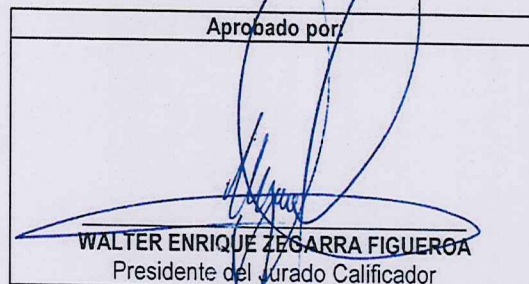 Aprobado por:
WALTER ENRIQUE ZEGARRA FIGUEROA
Presidente del Jurado Calificador